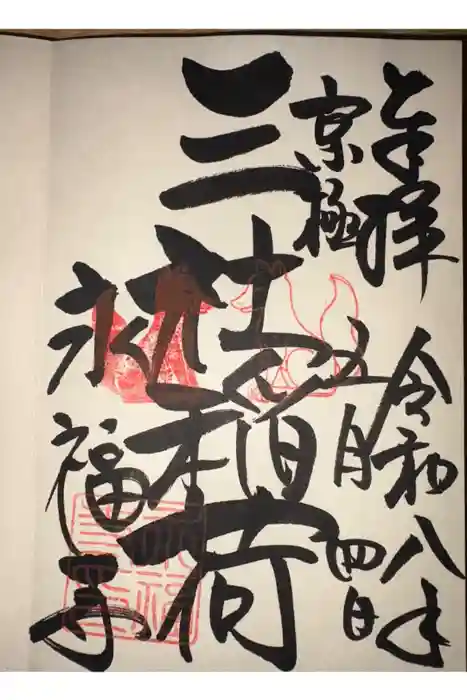 奉拝
令和八年
京極
五月
四日
三社稲荷
永福寺